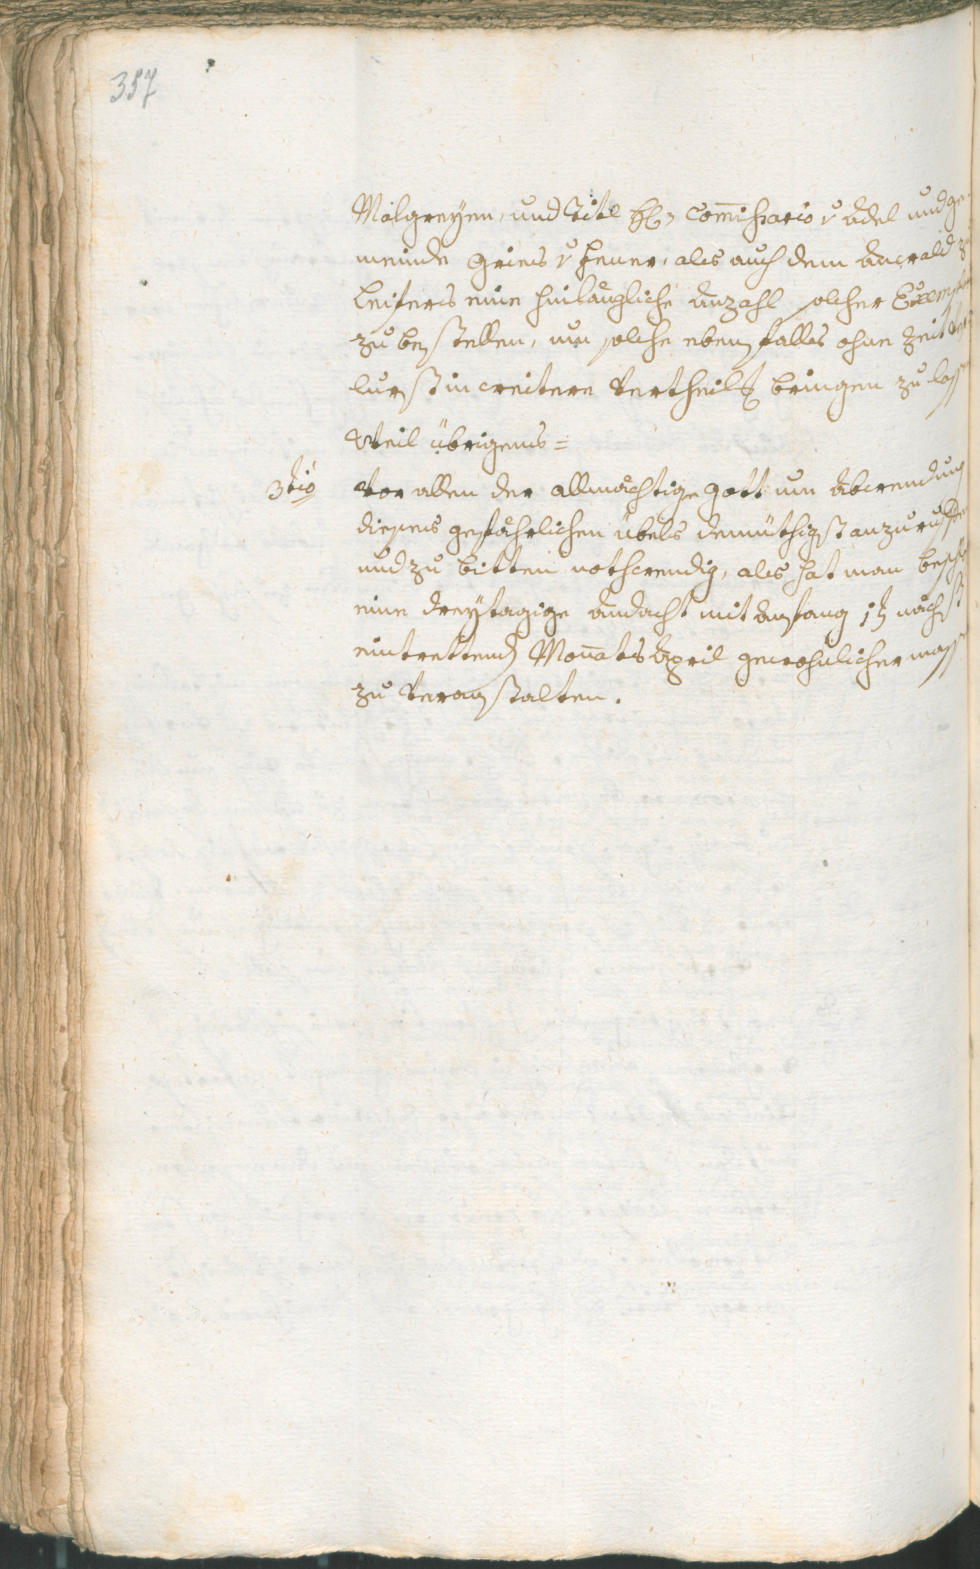 357
Malgreyen, und Titl H: Commissario v Adel und ge-
meinde Gries v Feuer, als auch dem Anwald zu
Leifers eine hinlängliche Anzahl solcher Exempl
zu bestellen, um solche ebenfalls ohne Zeit Ver-
lurst in weitere Vertheilg bringen zu lassen
Weil übrigens =
3tió Vor allen der allmächtige Gott um Abwendung
diesens gefährlichen Übels demüthigst anzuruffen
und zu bitten nothwendig, als hat man beschl
eine dreytägige Andacht mit Anfang 1t nächst
eintrettend Monats April gewohnlicher massen
zu Veranstalten.